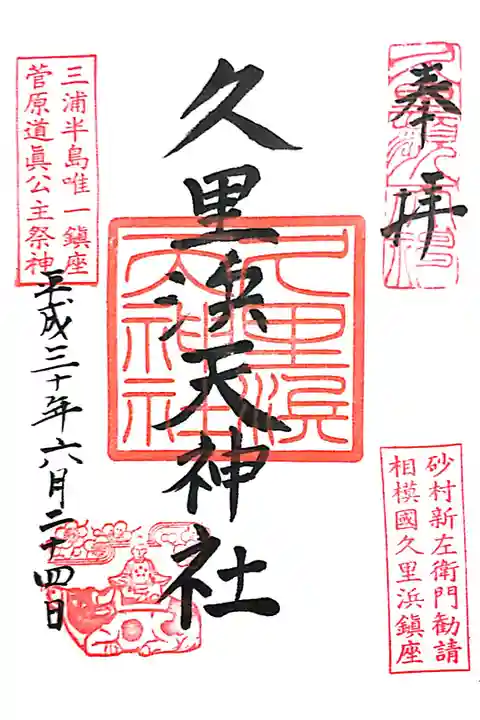 奉拝
久里浜天神社
久里濱
天神社
砂村新左衛門勧請
相模國久里浜鎮座
三浦半島唯一鎮座
菅原道眞公主祭神
平成三十年六月二十四日